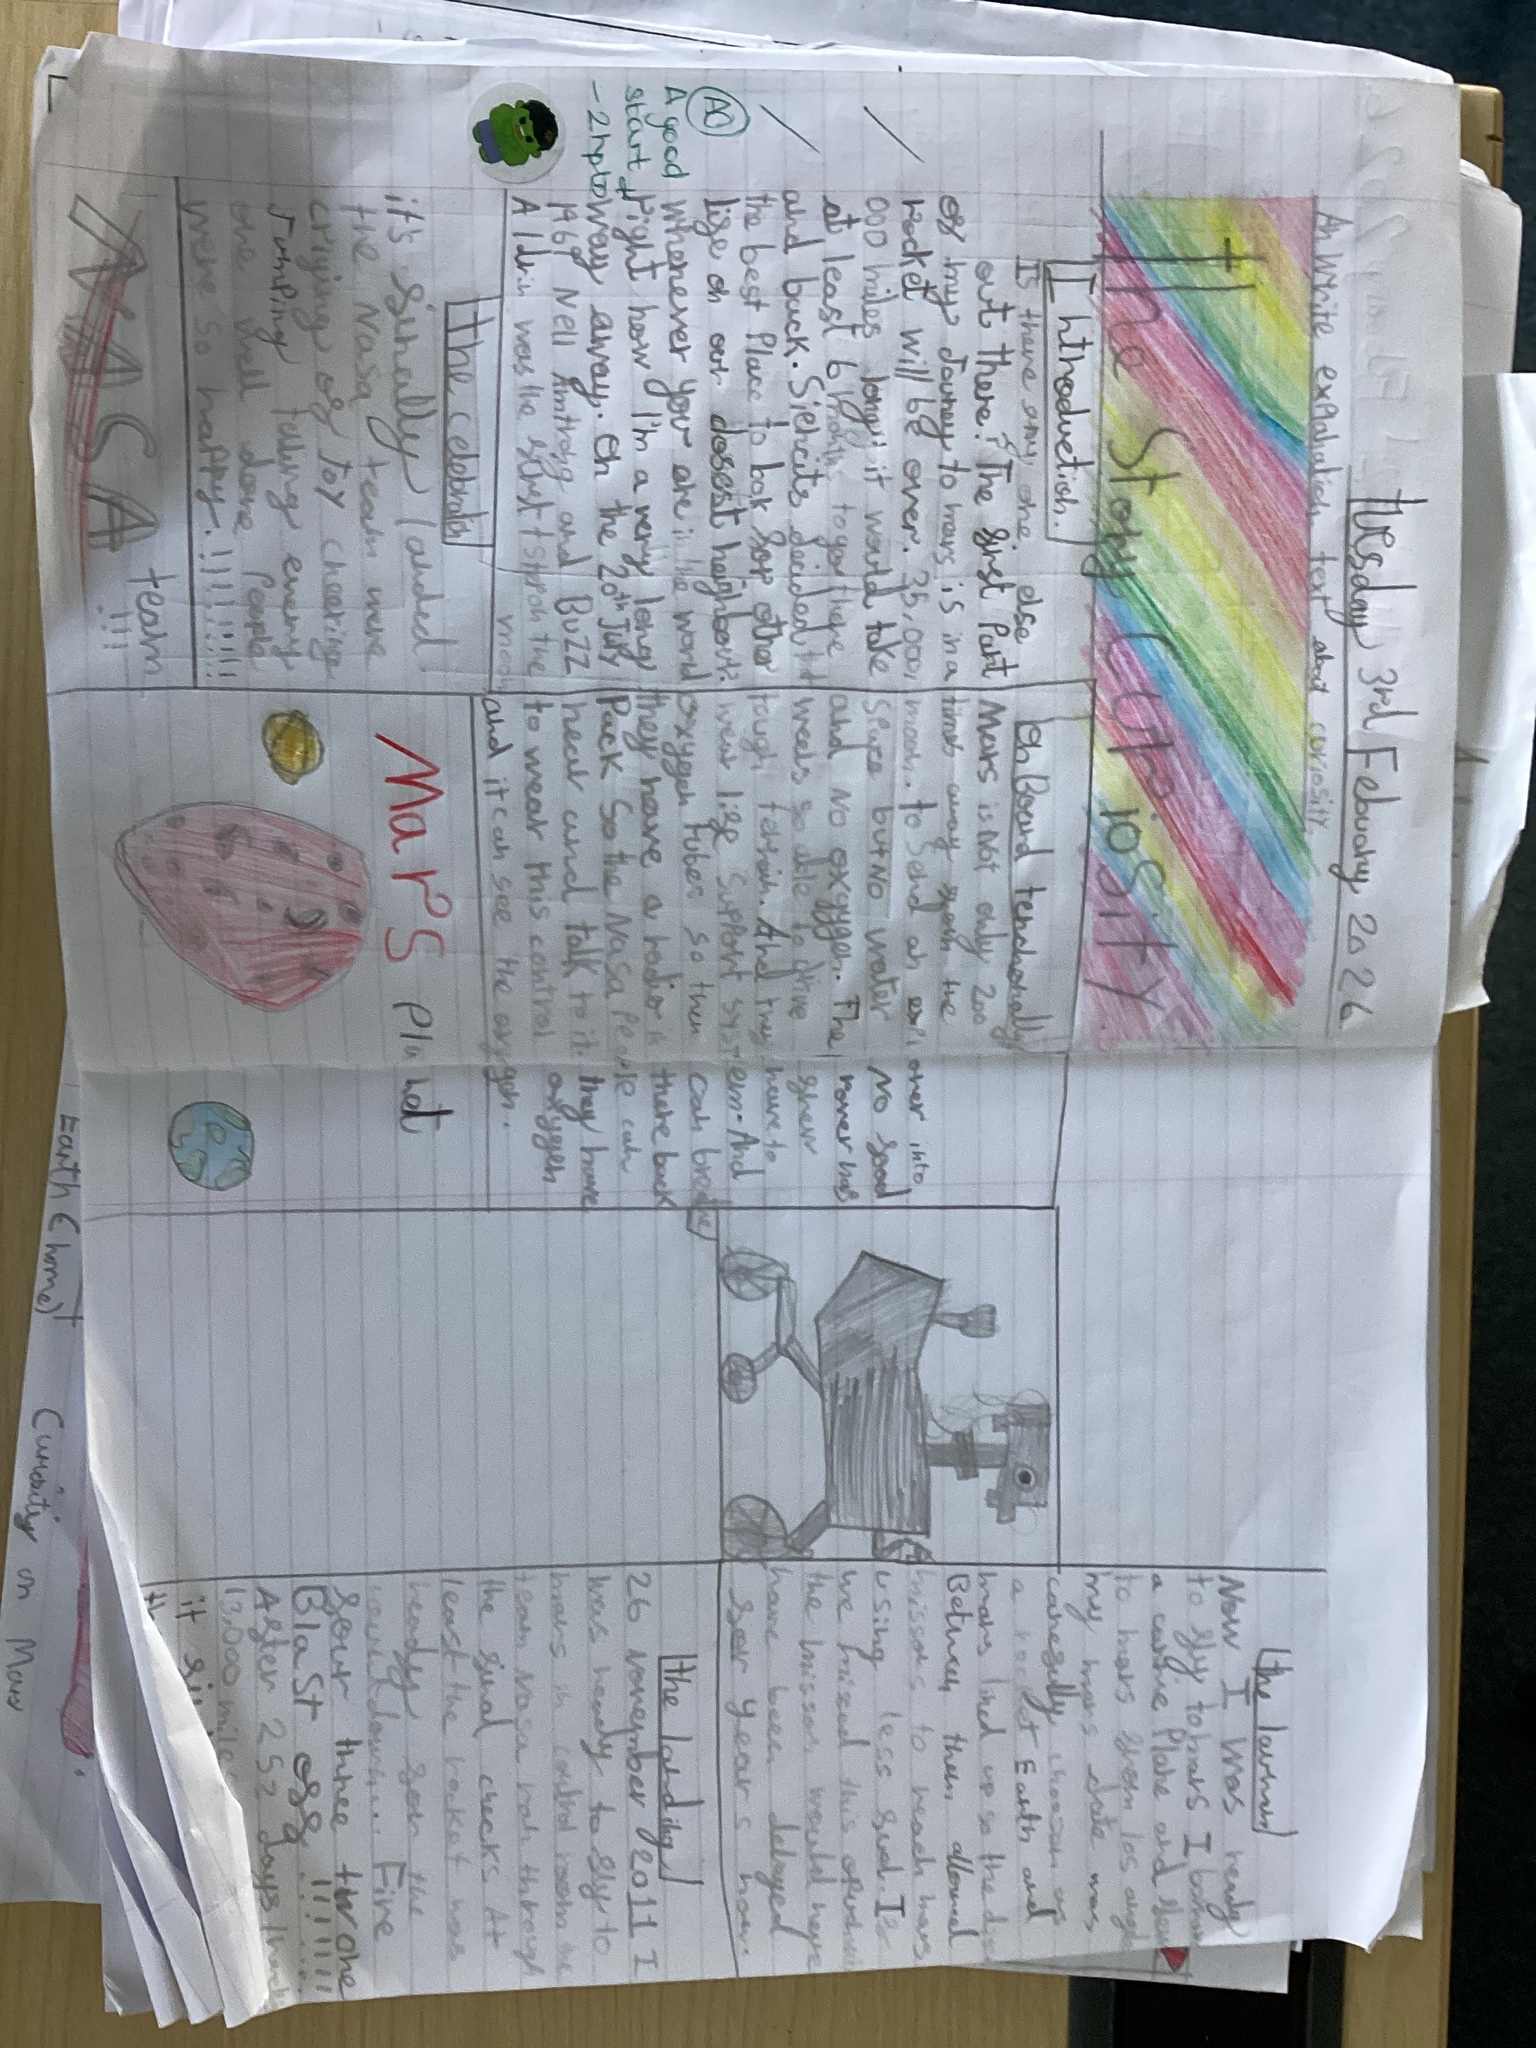 Tuesday 3rd Febuary 2026
An write explanation text about curiosity.
The Story Curiosity.
Introduction.
Is there any one else
out there? The first Part
of my Journey to mars is in a
rocket will be over. 35,000,
000 miles long it would take
at least 6 months to get there
and back.
the best Place to look for other
life on our closest neighbour.
Whenever you are in the world
right how I'm a very long
way away. On the 20th July
1969 Neil Amtrong and Buzz
Aldrin was the first t step on the
moon
A good
start
The celebration
it's finally landed
the Nasa team were
crying of joy cheering
Jumping telling every
one well done People
were so happy.!!!!!!!!!!
NASA team
!!!
On Board
Mars is not only 200
times away from the
moon. to send an over into
space but No water No food
and No oxygygen. The rover has
weels so able to drive
tough terrain. And they have to
wear life support system. And
oxygen tubes so then can breathe
they have a radio in there back
Pack so the Nasa People can
hear and talk to it. they have
to wear this control oxygen
and it can see the oxygen.
Mars planet
The launch
Now I was ready
to fly to mars I
a cargo Plane and flew
to mars from los
my mars date was
carefully choosen as
a rocket Earth and
mars lined up so the
Between them allowed
missons to reach mars
using less fuel. If
we missed this
the misson would have
have been delayed
for years
The landing
26 November 2011 I
was ready to fly to
mars in control room
team Nasa ran through
the final checks At
least the rocket was
ready for the
countdown... Five
four three two one
BlaSt off!!!!!!!!
After 252 days
13,000 miles
it
Earth (home)
Curiosity on Mars